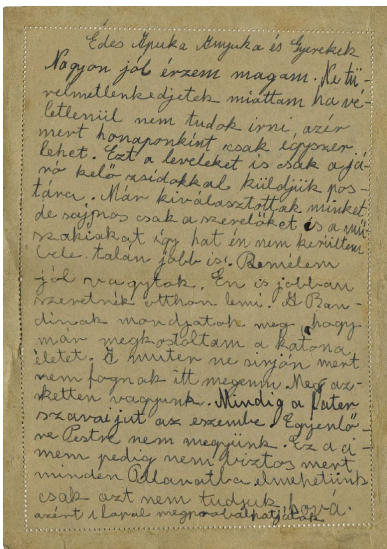 Édes Apuka Anyuka és Gyerekek
Nagyon jól érzem magam. Ne tü-
relmetlenkedjetek miattam ha vé-
letlenül nem tudok irni, azér
mert honaponkint csak egyszer
lehet. Ezt a leveleket is csak a já-
ró kelő zsidokkal küldjük pos-
tára. Már kiválasztottak minket
de sajnos csak a szerelőket is a mü-
szakiakat igy hat én nem kerültem
bele. talán jobb is! Remélem
jól vagytok. Én is jobban
szeretnék otthon lenni. A Ban-
dinak mondjatok meg hogy
már megkostoltam a katona
életet. S muter ne sirjon mert
nem fognak itt megenni. Meg az-
ketten vagyunk. Mindig a fater
szavai jut az eszembe. Egyenlő-
re Pestre nem megyünk. Ez a ci-
mem pedig nem biztos mert
minden pillanatba elmehetünk
csak azt nem tudjuk hová.
azért 1 lapal megprobálhatjátok